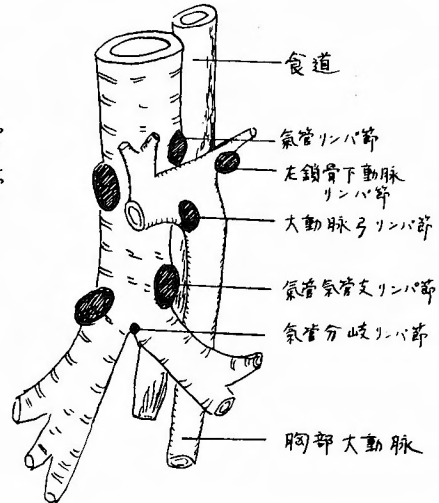 食道
氣管リンパ節
左鎖骨下動脈
リンパ節
大動脈弓リンパ節
氣管氣管支リンパ節
氣管分岐リンパ節
胸部大動脈